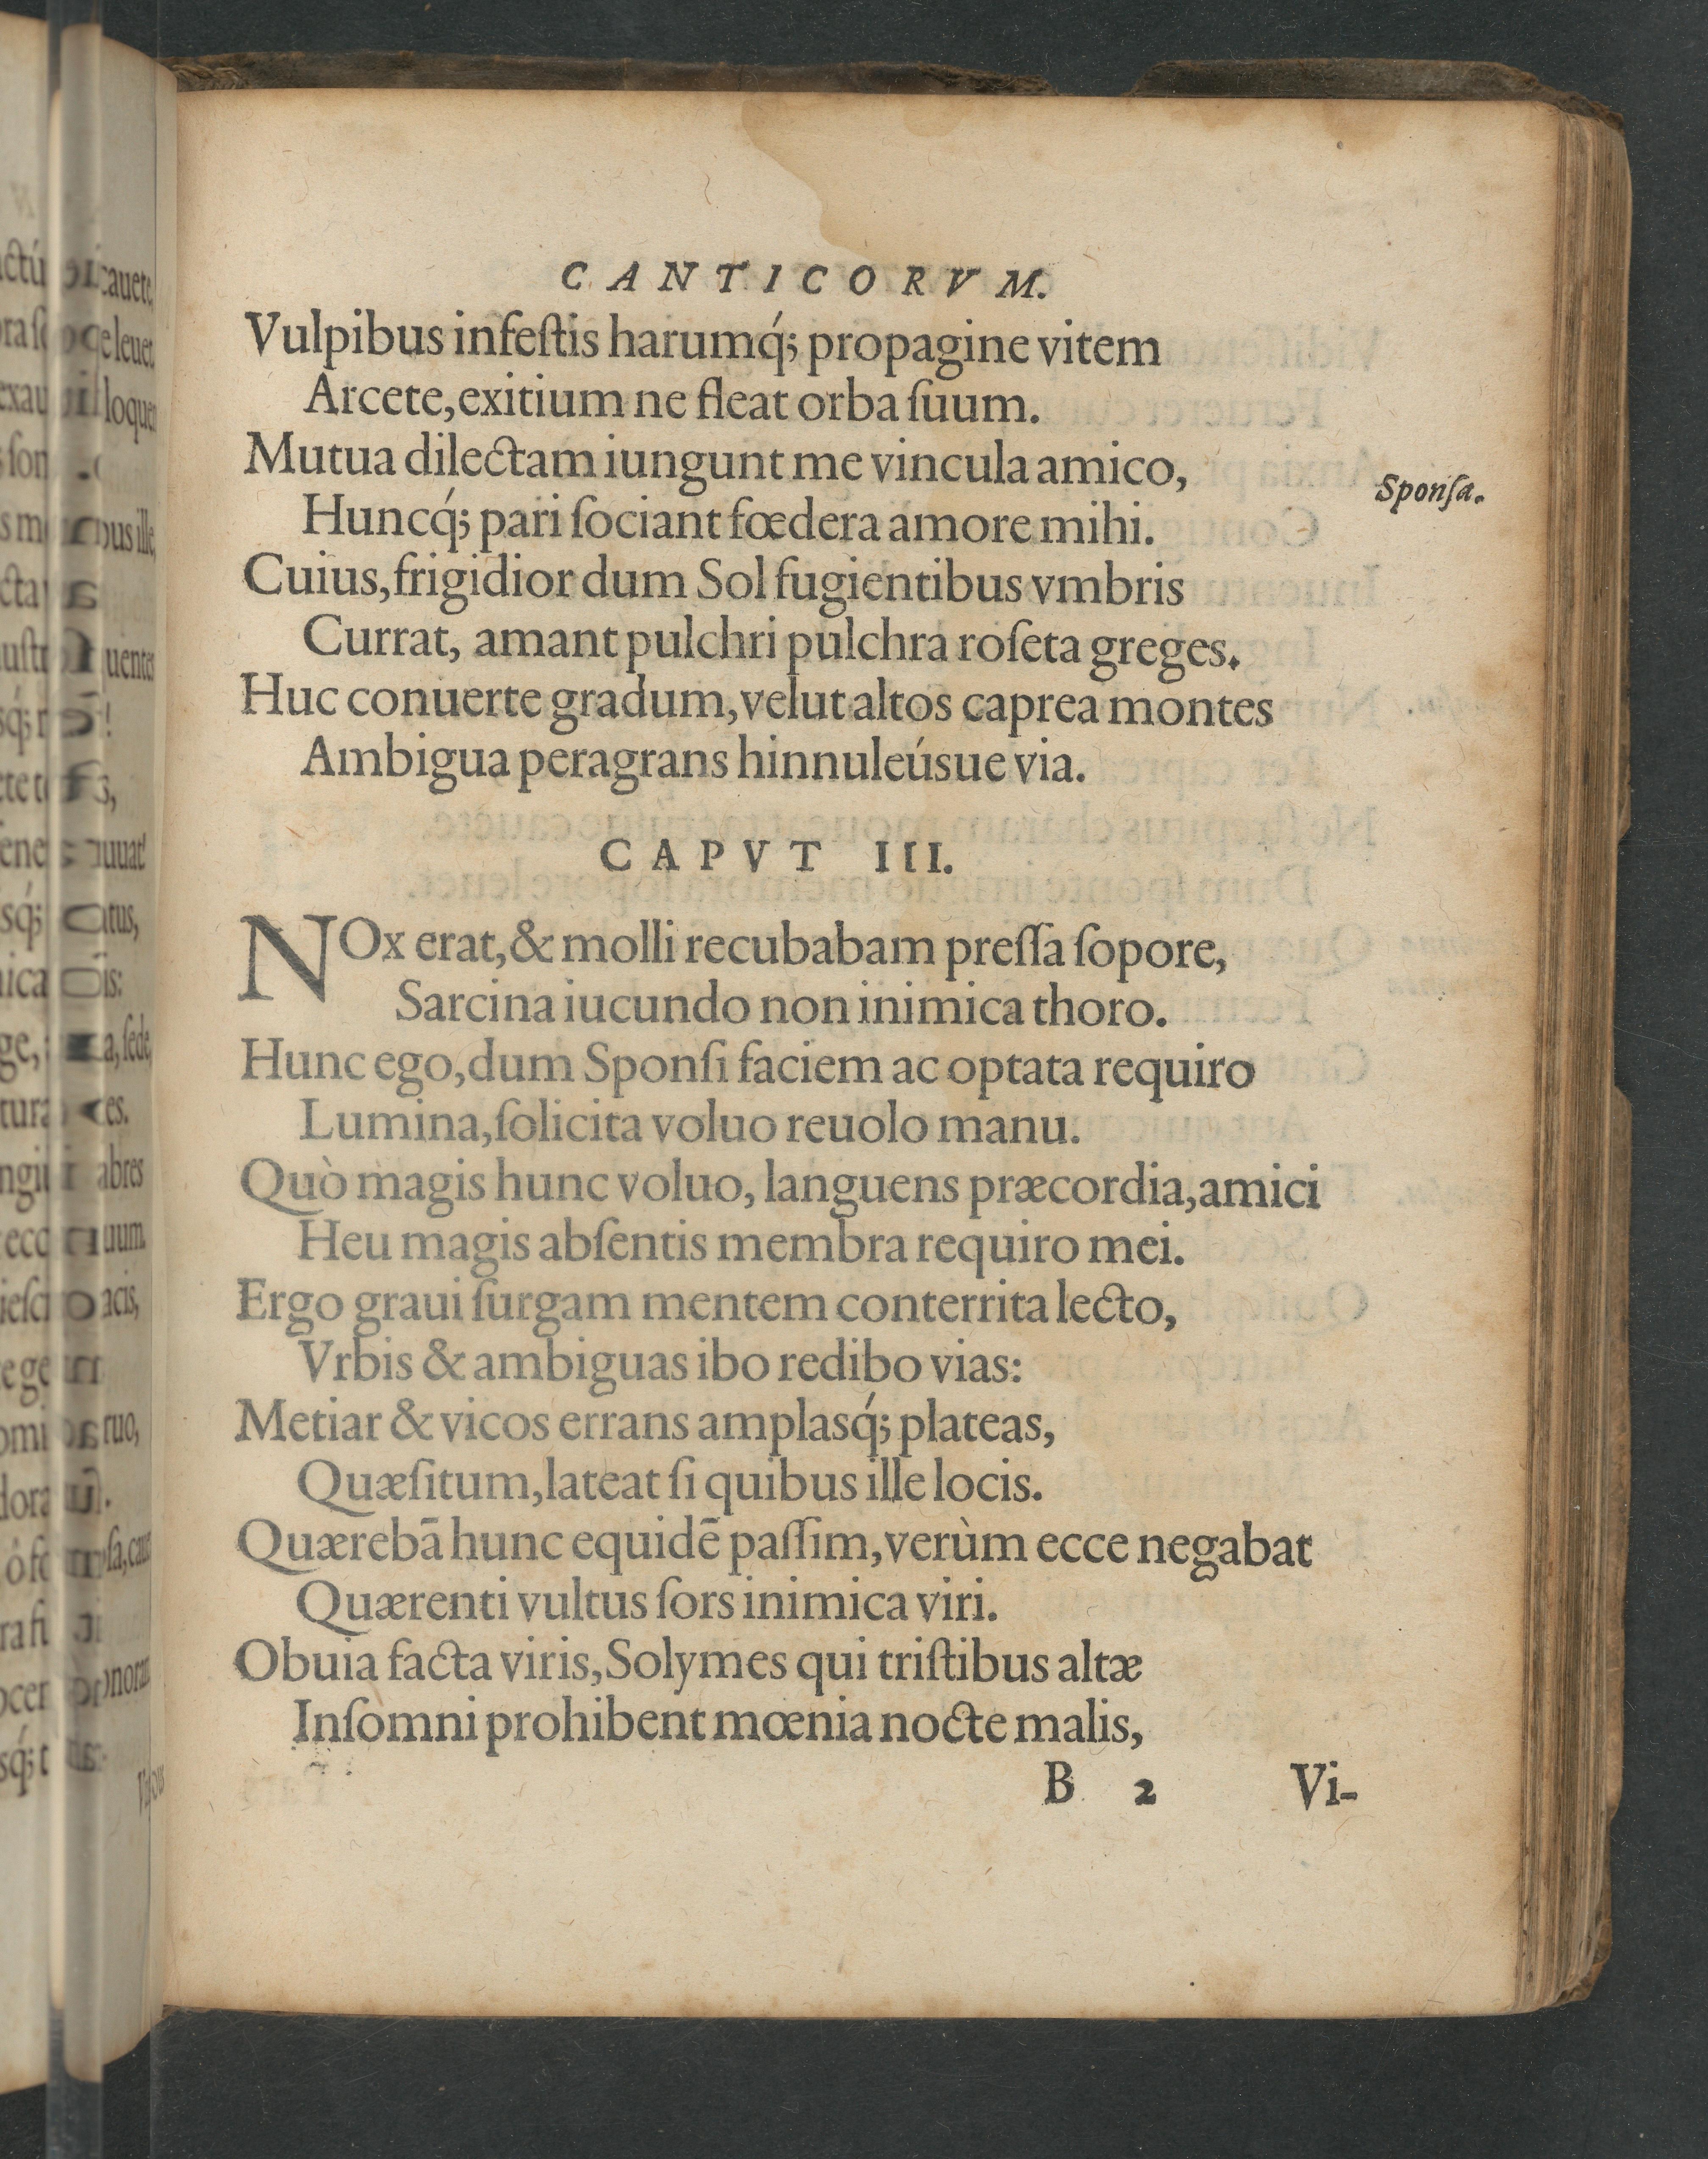 CANTICORVM.
Vulpibus infeſtis harumq́; propagine vitem
Arcete, exitium ne fleat orba ſuum.
Mutua dilectam iungunt me vincula amico,
Sponſa.
Huncq́; pari ſociant fœdera amore mihi.
Cuius, frigidior dum Sol fugientibus vmbris
Currat, amant pulchri pulchra roſeta greges.
Huc conuerte gradum, velut altos caprea montes
Ambigua peragrans hinnuleúsue via.
CAPVT III.
NOx erat, & molli recubabam preſſa ſopore,
Sarcina iucundo non inimica thoro.
Hunc ego, dum Sponſi faciem ac optata requiro
Lumina, ſolicita voluo reuolo manu.
Quò magis hunc voluo, languens præcordia, amici
Heu magis abſentis membra requiro mei.
Ergo graui ſurgam mentem conterrita lecto,
Vrbis & ambiguas ibo redibo vias:
Metiar & vicos errans amplasq́; plateas,
Quæſitum, lateat ſi quibus ille locis.
Quærebā hunc equidē paſſim, verùm ecce negabat
Quærenti vultus ſors inimica viri.
Obuia facta viris, Solymes qui triſtibus altæ
Inſomni prohibent mœnia nocte malis,
B 2 Vi-